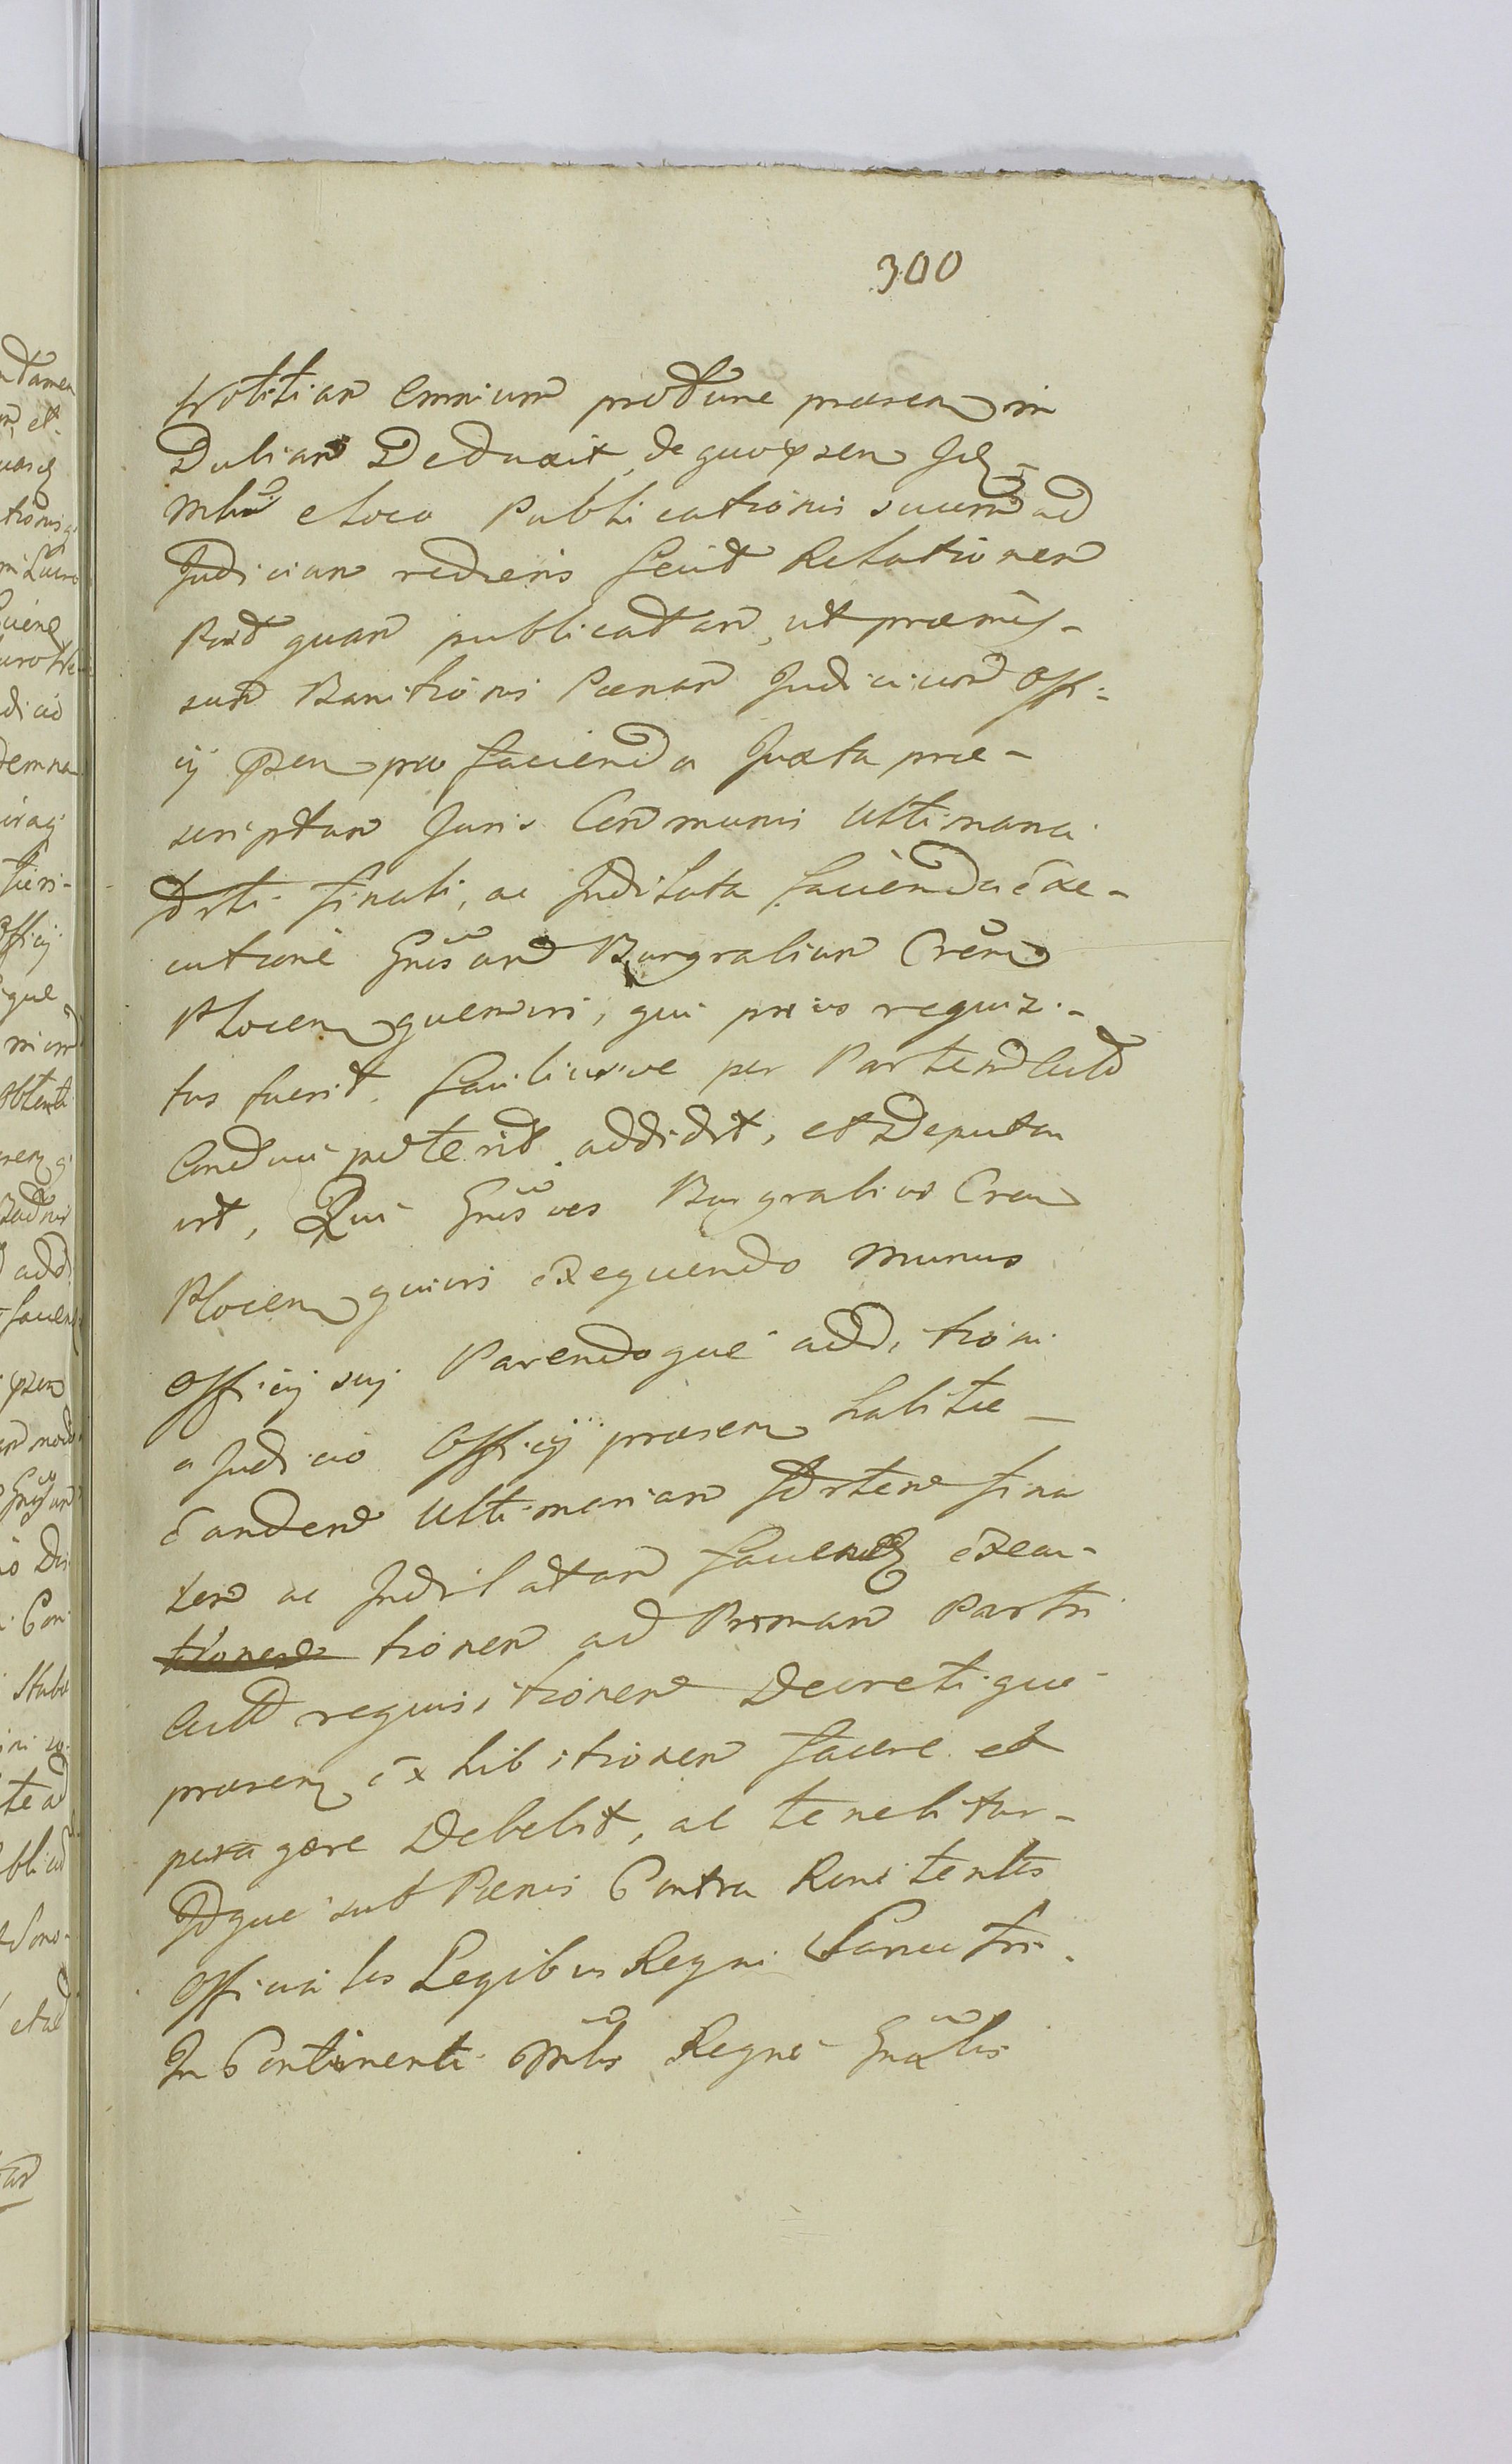 300
Notitiam omnium protunc praesen in
Dubiam Deduxit, de quo ipsem Idem
Mlris e loco Publicationis suum ad
Judiciam rediens fecit Relationem
Post quam publicatam, ut praemis-
sum Banitionis Paenam Judicium Offi-
cij psen pro facienda Juxta prae-
scriptum Juris Communis Ultimaria
Srti finali, ac Judilata facienda Exe-
cutione Gnosum Burgrabium Cren
Plocen quemvis, qui prius requisi-
tus fuerit, faciliusve per Partem Actd
Conduci poterit addidit, et Deputa
vit, Qui Gnosus Burgrabius Cren
Plocen quivis Exequendo munus
Officij sui Parendoque additioni
a Judicio Officij praesen habitae
Eandem Ultimariam Sortem fina
lem ac Judilatam faciend Execu-
tionem ad Primam Partis
Actd requisitionem Decretique
praesen Exhibitionem facere et
peragere Debebit, ac tenebitur
Idque sub Paenis Contra Renitentes
Officiales Legibus Regni Sancitis
In Continenti Mlris Regni Gnalis